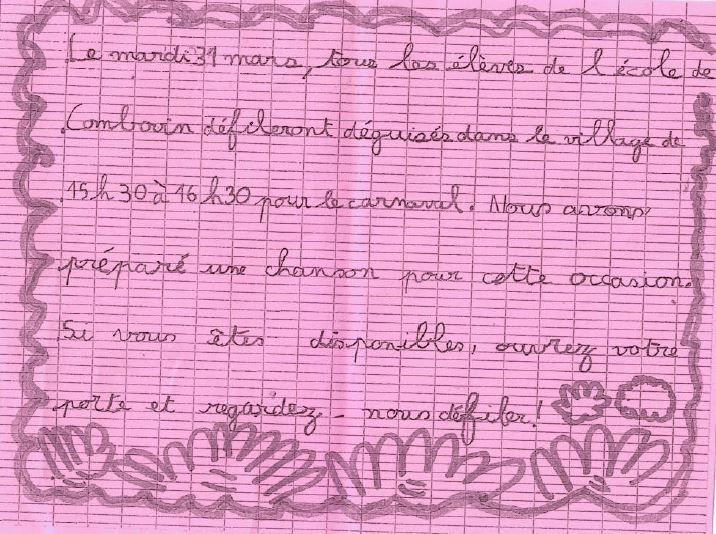 Le mardi 31 mars, tous les élèves de l'école de
Combovin défileront déguisés dans le village de
15h30 à 16h30 pour le carnaval. Nous avons
préparé une chanson pour cette occasion.
Si vous êtes disponibles, ouvrez votre
porte et regardez-nous défiler!